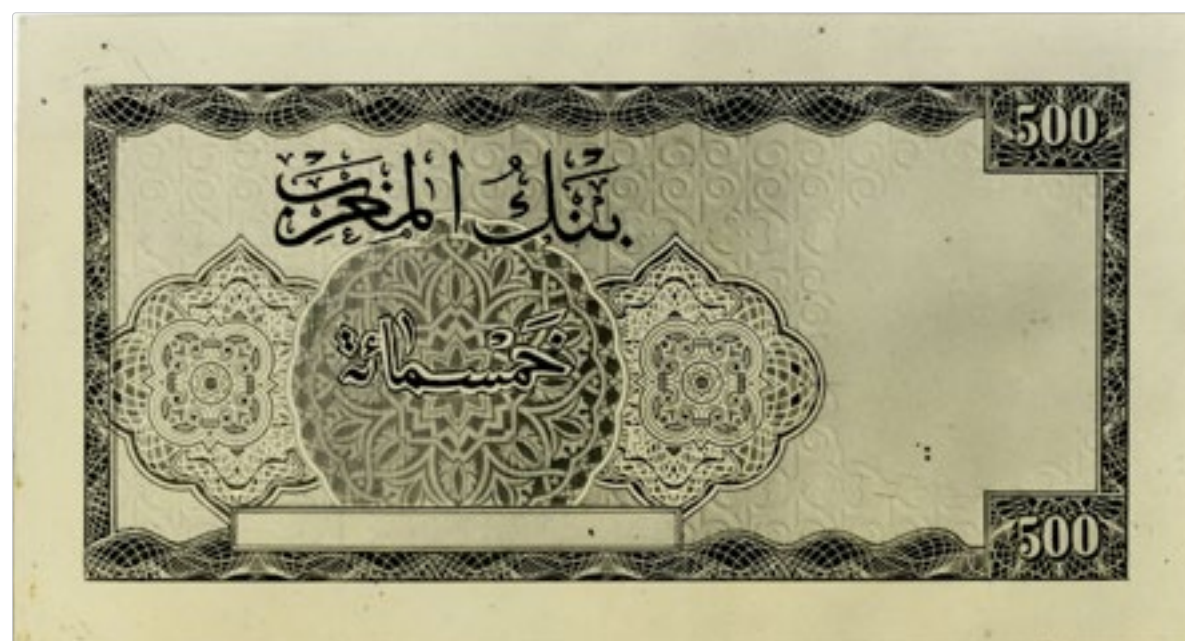 500
بَنْكُ المَغرِب
خَمْسمائة
500